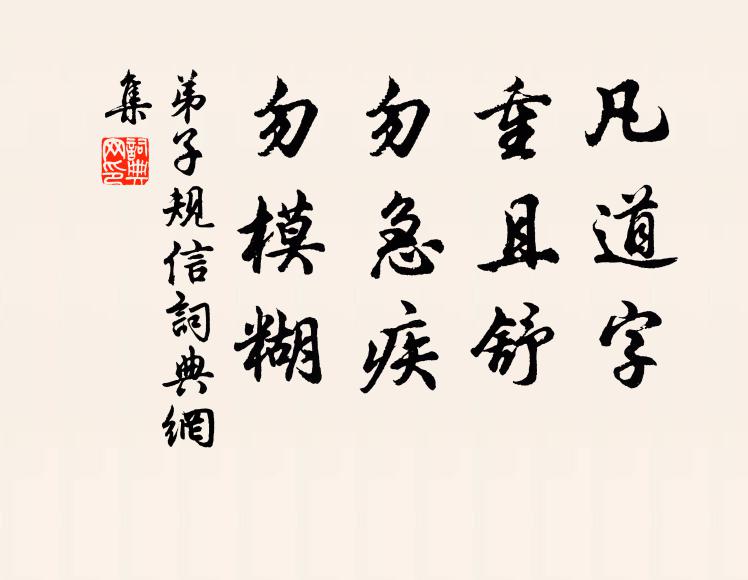 凡道字
重且舒
勿急疾
勿模糊
弟子规信詞典網
集
詞典
网印